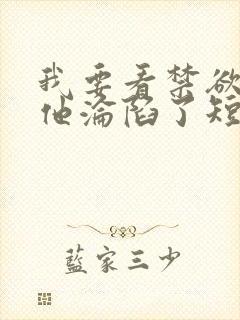 我要看禁欲
他沦陷了短
蓝家三少